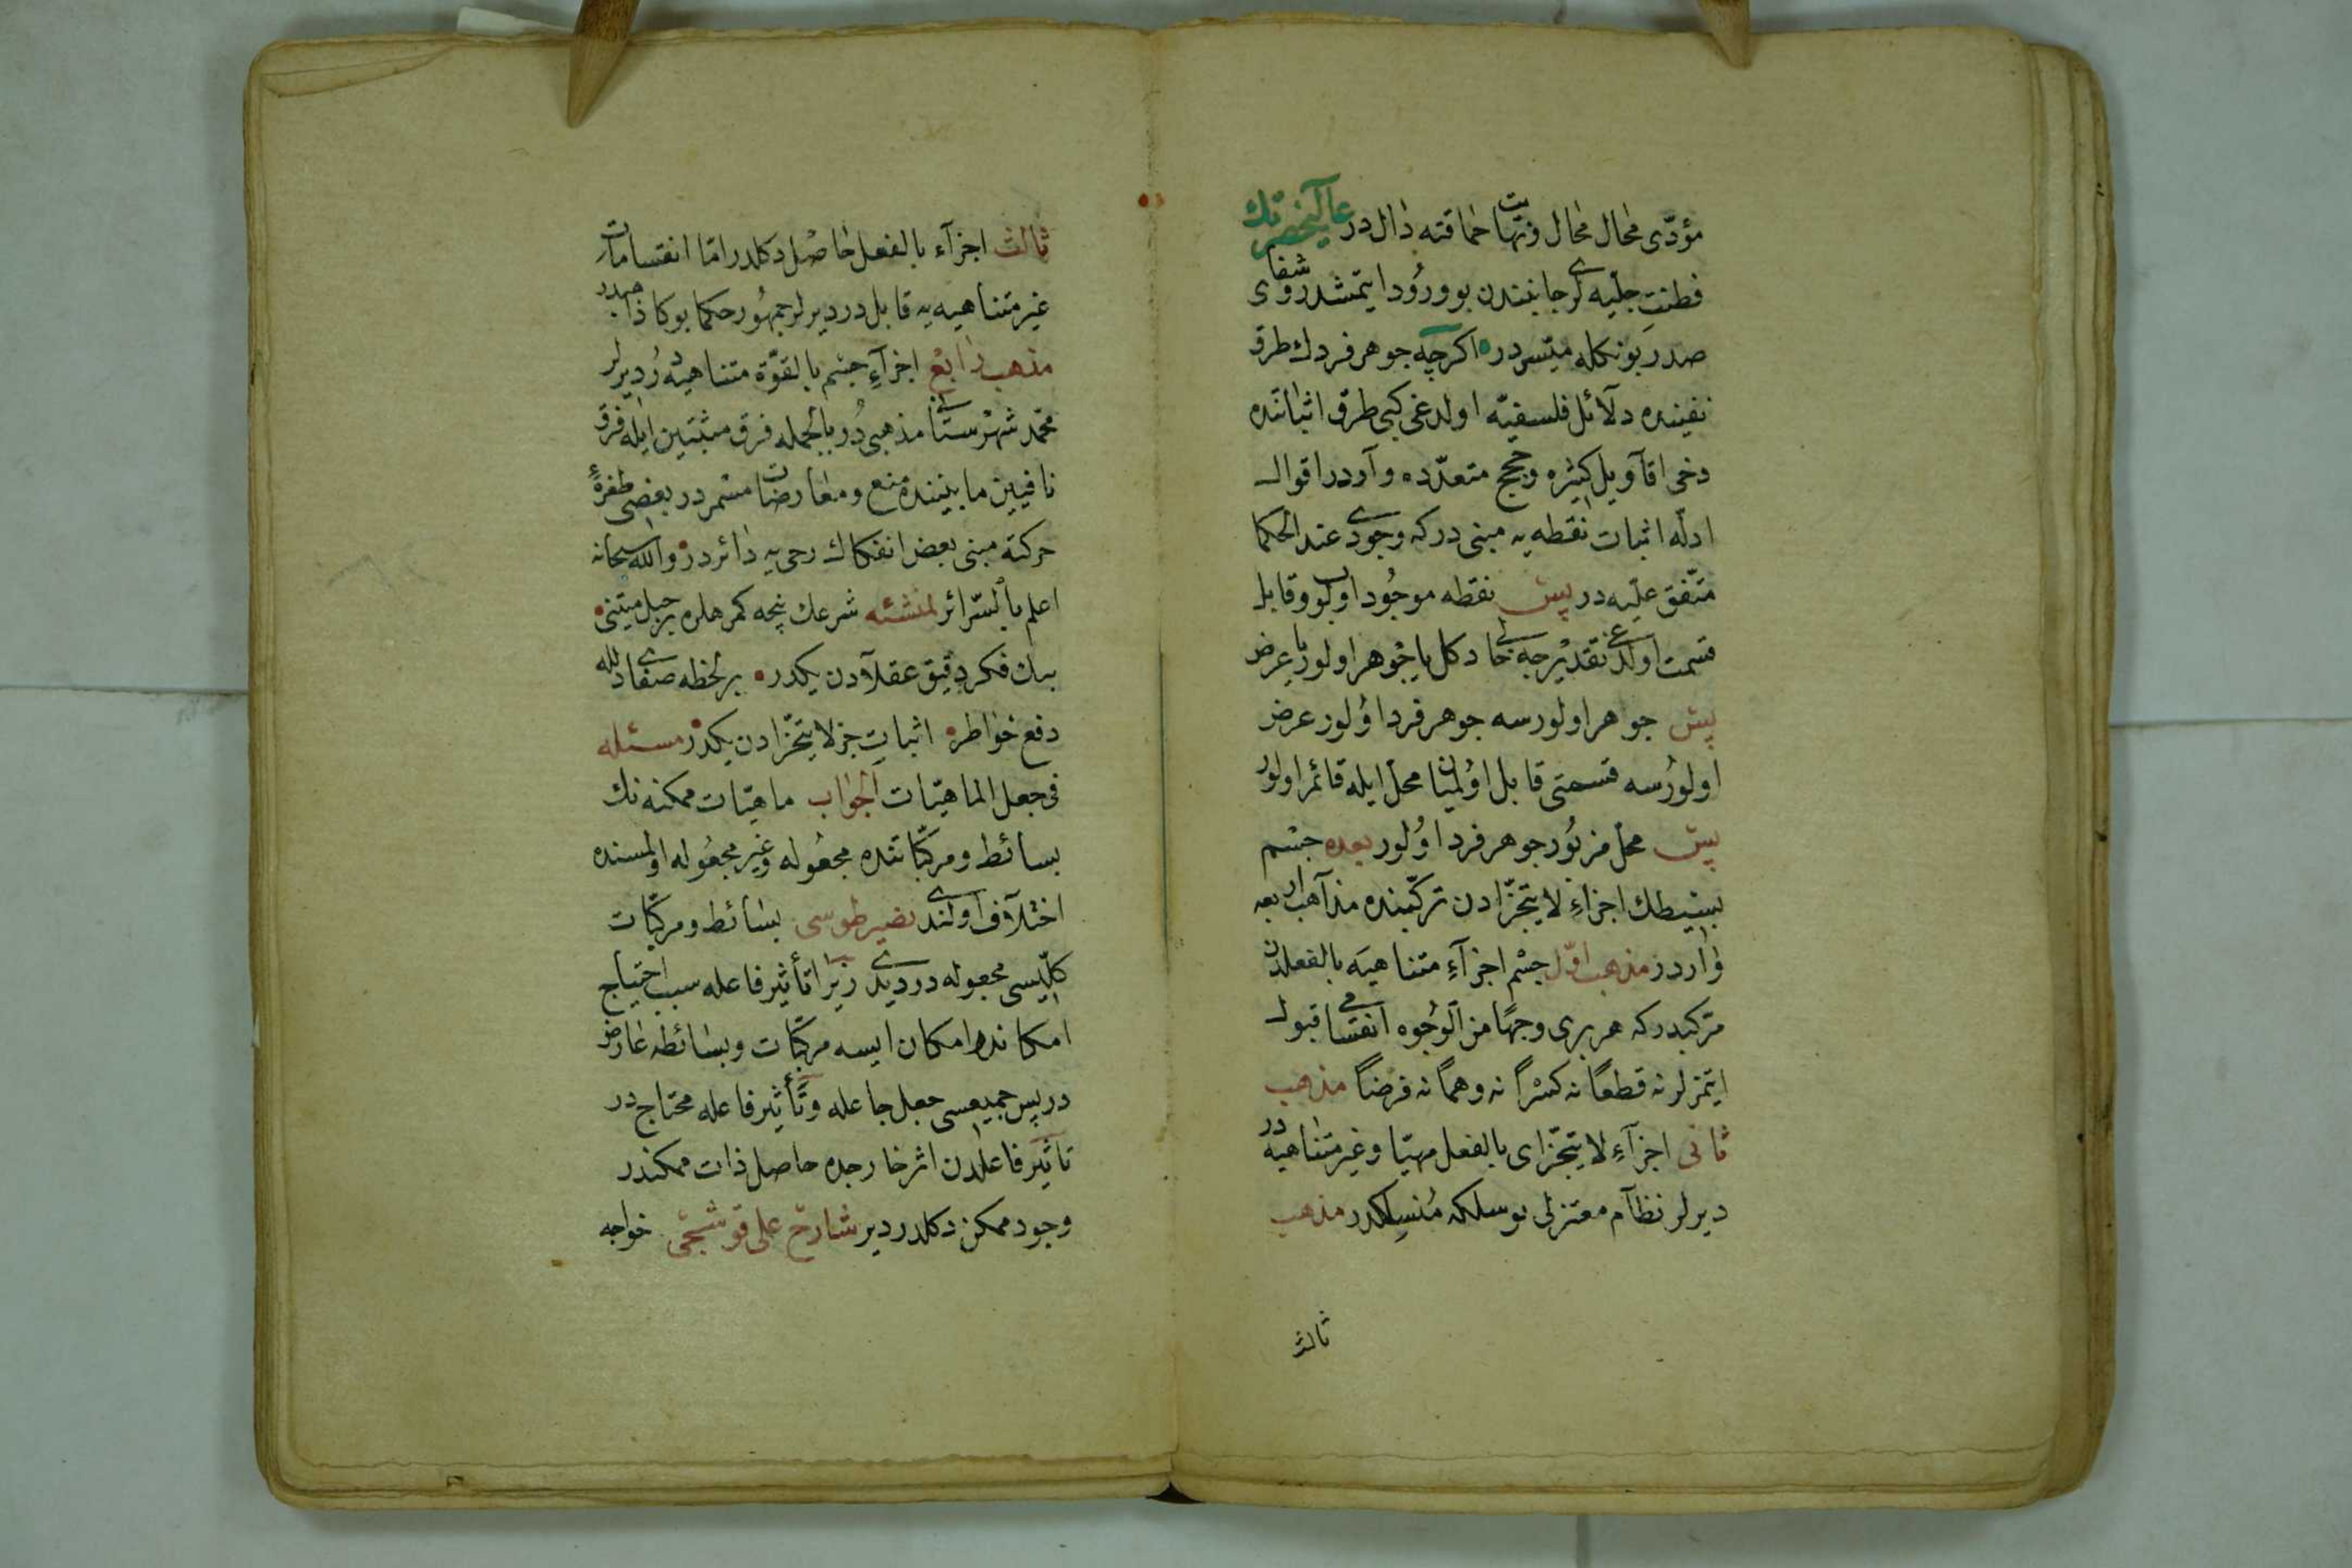 مؤدّی محال محال ونهایت حماقته دال در عالیحضرتك
فطنت جلیه لری جانبندن بو ورود ایتمشدر شفای
صدر بونكله میسر در اكرچه جوهر فردك طرق
نفینده دلآئل فلسفیّه اولدغی كبی طرق اثباتنده
دخی اقآویل كثیره وحجج متعدّده وآردر اقوال
ادلّه اثبات نقطه یه مبنی دركه وجودی عند الحكما
متّفق علیه در پس نقطه موجود اولوب وقابل
قسمت اولمدغی تقدیرجه خالی دكل یا جوهر اولور یا عرض
پس جوهر اولورسه جوهر فرد اولور عرض
اولورسه قسمتی قابل اولمیان محل ایله قائم اولور
پس محل مزبور جوهر فرد اولور بعده جسم
بسیطك اجزاءِ لا یتجزّادن تركّبنده مذآهب اربعه
واردر مذهب اوّل جسم اجزآءِ متناهیه بالفعلدن
مركبدركه هر بری وجهًا من الوجوه انقسامی قبول
ایتمزلر نه قطعًا نه كسرًا نه وهمًا نه فرضًا مذهب
ثانی اجزآءِ لا یتجزّای بالفعل مهیّا وغیر متناهیه در
دیرلر نظآم معتزلی بو سلكه منسلكدر مذهب
ثالث
ثالث اجزآء بالفعل حاصل دكلدر امّا انقسامات
غیر متناهیه یه قابل در دیرلر جمهور حكما بوكا ذاهبدر
مذهب رابع اجزآءِ جسم بالقوّة متناهیه در دیرلر
محمّد شهرستانی مذهبی در بالجمله فرق مثبتین ایله فرق
نافیین مابیننده منع ومعارضات مستمر در بعضی طفرۀ
حركته مبنی بعض انفكاك رحی یه دائر در والله سبحانه
اعلم بالسّرائر لمنشئه شرعك نیجه كمرهلره بر حبل متینی
بیك فكر دقیق عقلآدن یكدر بر لحظه صفای دلله
دفع خواطر اثبات جزء لا یتجزّادن یكدر مسئله
فی جعل الماهیّات الجواب ماهیّات ممكنه نك
بسائط ومركّباتنده مجعوله وغیر مجعوله اولمسنده
اختلآف اولندی نصیر طوسی بسائط ومركّبات
كلّیسی مجعوله در دیدی زیرا تأثیر فاعله سبب احتیاج
امكاندر امكان ایسه مركّبات وبسائطه عارض
در پس جمیعسی جعل جاعله وتأثیر فاعله محتاج در
تأثیر فاعلدن اثر خارجده حاصل ذات ممكندر
وجود ممكن دكلدر دیر شارح علی قوشجی خواجه